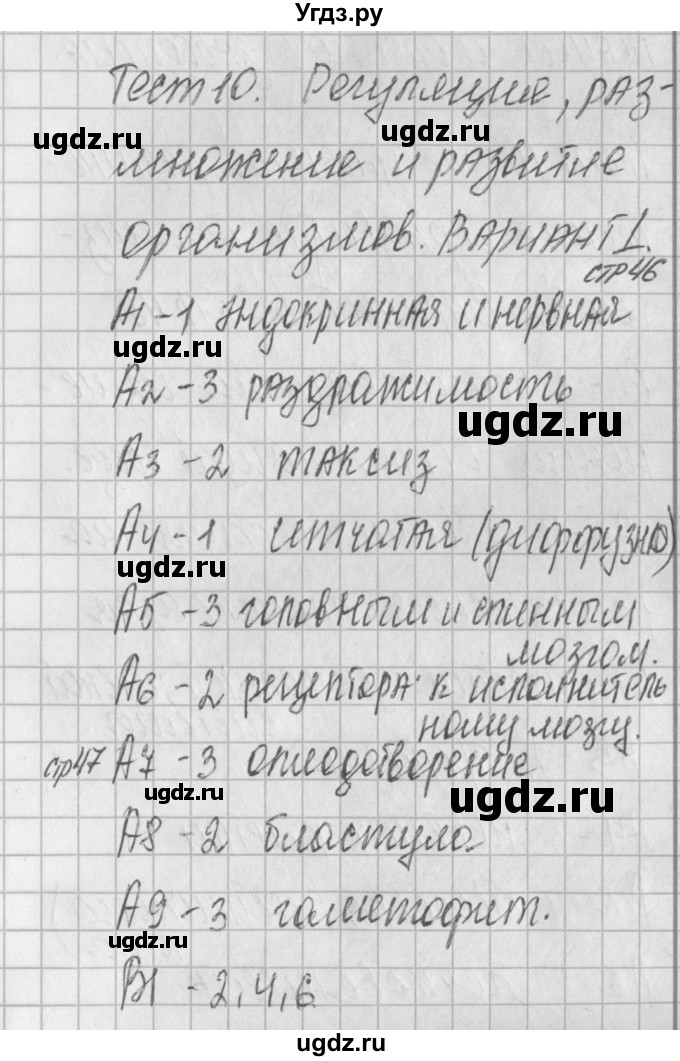 Угдз.ру
Тест 10. Регуляция, раз-
ugdz.ru
ugdz.ru
множение и развитие
организмов. Вариант 1.
стр 46
А1 - 1 эндокринная и нервная
ugdz.ru
А2 - 3 раздражимость
ugdz.ru
А3 - 2 таксиз
А4 - 1 сетчатая (диффузно)
ugdz.ru
А5 - 3 головным и спинным
мозгом.
А6 - 2 рецептора к исполнитель
ному мозгу.
стр 47 А7 - 3 оплодотворение
ugdz.ru
ugdz.ru
А8 - 2 бластула
А9 - 3 гаметофит.
ugdz.ru
В1 - 2, 4, 6
ugdz.ru